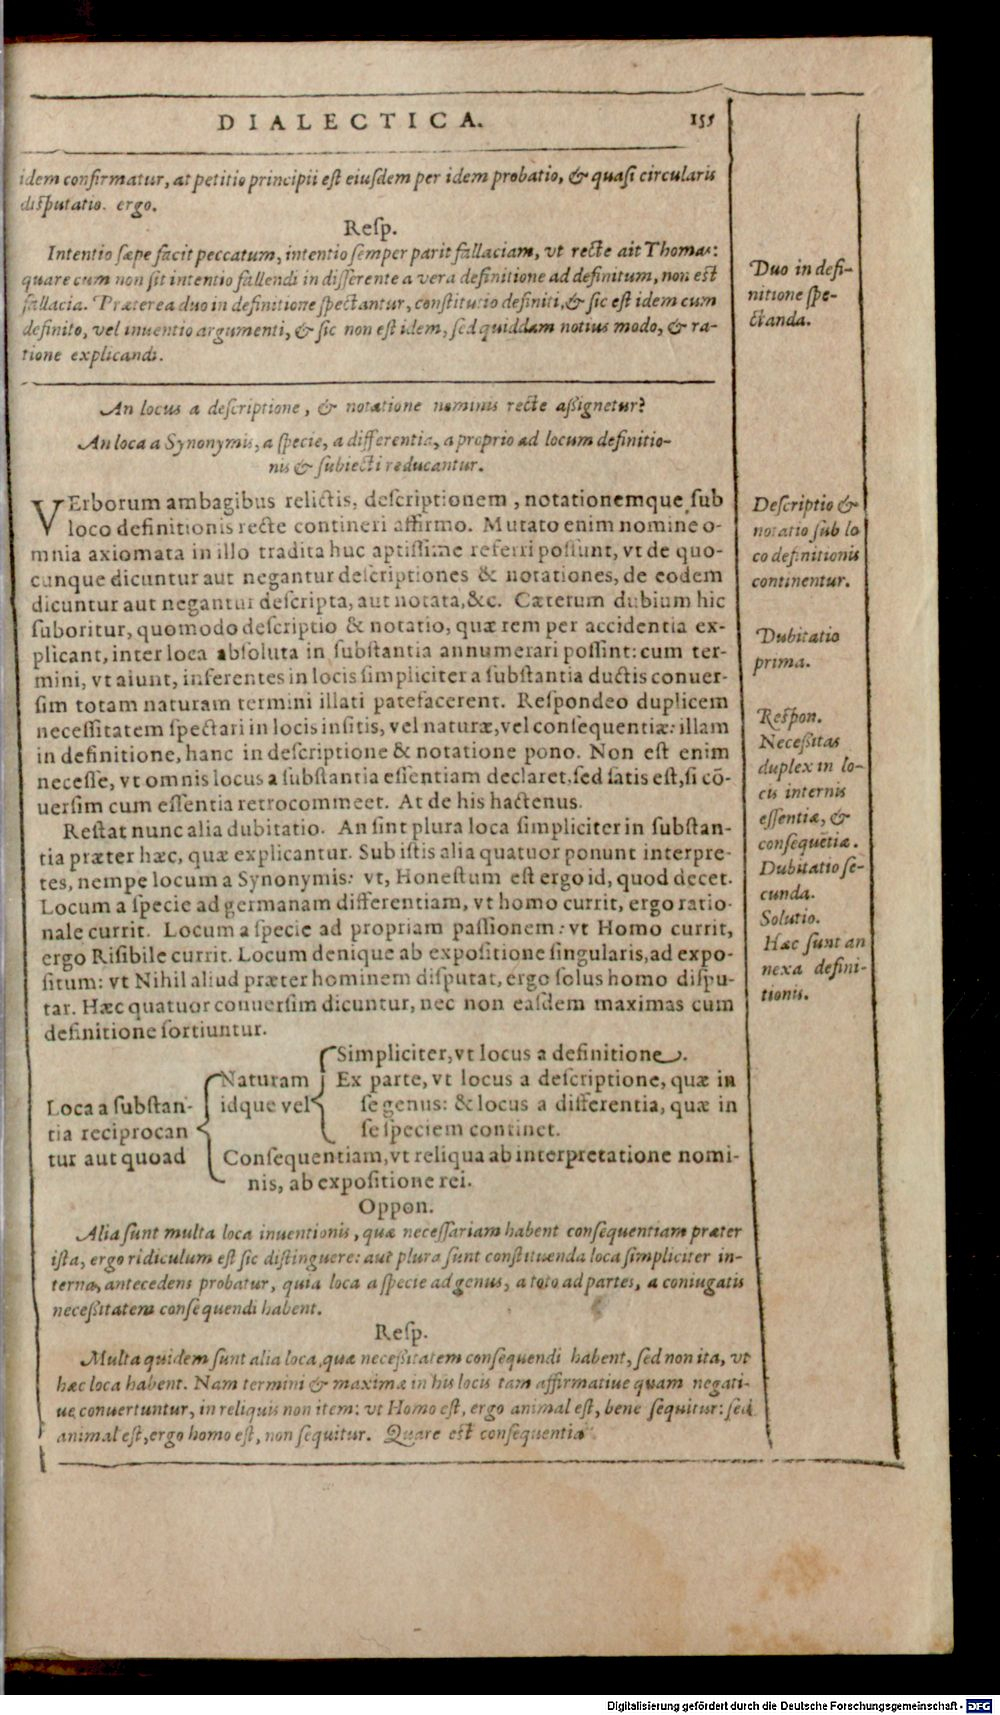 DIALECTICA. 155
idem confirmatur, at petitio principii est eiusdem per idem probatio, & quasi circularis
disputatio. ergo.
Resp.
Intentio sæpe facit peccatum, intentio semper parit fallaciam, vt recte ait Thomas:
quare cum non sit intentio fallendi in disserente a vera definitione ad definitum, non est
fallacia. Præterea duo in definitione spectantur, constitutio definiti, & sic est idem cum
definito, vel inuentio argumenti, & sic non est idem, sed quiddam notius modo, & ra-
tione explicandi.
Duo in defi-
nitione spe-
ctanda.
An locus a descriptione, & notatione nominis recte assignetur?
An loca a Synonymis, a specie, a differentia, a proprio ad locum definitio-
nis & subiecti reducantur.
VErborum ambagibus relictis, descriptionem, notationemque sub
loco definitionis recte contineri affirmo. Mutato enim nomine o-
mnia axiomata in illo tradita huc aptissime referri possunt, vt de quo-
cunque dicuntur aut negantur descriptiones & notationes, de eodem
dicuntur aut negantur descripta, aut notata, &c. Cæterum dubium hic
suboritur, quomodo descriptio & notatio, quæ rem per accidentia ex-
plicant, inter loca absoluta in substantia annumerari possint: cum ter-
mini, vt aiunt, inferentes in locis simpliciter a substantia ductis conuer-
sim totam naturam termini illati patefacerent. Respondeo duplicem
necessitatem spectari in locis insitis, vel naturæ, vel consequentiæ: illam
in definitione, hanc in descriptione & notatione pono. Non est enim
necesse, vt omnis locus a substantia essentiam declaret, sed satis est, si cō-
uersim cum essentia retrocommeet. At de his hactenus.
Descriptio &
notatio sub lo
co definitionis
continentur.
Dubitatio
prima.
Respon.
Necessitas
duplex in lo-
cis internis
essentiæ, &
consequētiæ.
Restat nunc alia dubitatio. An sint plura loca simpliciter in substan-
tia præter hæc, quæ explicantur. Sub istis alia quatuor ponunt interpre-
tes, nempe locum a Synonymis: vt, Honestum est ergo id, quod decet.
Locum a specie ad germanam differentiam, vt homo currit, ergo ratio-
nale currit. Locum a specie ad propriam passionem: vt Homo currit,
ergo Risibile currit. Locum denique ab expositione singularis, ad expo-
situm: vt Nihil aliud præter hominem disputat, ergo solus homo dispu-
tat. Hæc quatuor conuersim dicuntur, nec non easdem maximas cum
definitione sortiuntur.
Dubitatio se-
cunda.
Solutio.
Hæc sunt an
nexa defini-
tionis.
Loca a substan-
tia reciprocan
tur aut quoad
Naturam
idque vel
Simpliciter, vt locus a definitione.
Ex parte, vt locus a descriptione, quæ in
se genus: & locus a differentia, quæ in
se speciem continet.
Consequentiam, vt reliqua ab interpretatione nomi-
nis, ab expositione rei.
Oppon.
Alia sunt multa loca inuentionis, quæ necessariam habent consequentiam præter
ista, ergo ridiculum est sic distinguere: aut plura sunt constituenda loca simpliciter in-
terna, antecedens probatur, quia loca a specie ad genus, a toto ad partes, a coniugatis
necessitatem consequendi habent.
Resp.
Multa quidem sunt alia loca, quæ necessitatem consequendi habent, sed non ita, vt
hæc loca habent. Nam termini & maximæ in his locis tam affirmatiue quam negati-
ue conuertuntur, in reliquis non item: vt Homo est, ergo animal est, bene sequitur: sed
animal est, ergo homo est, non sequitur. Quare est consequentia
Digitalisierung gefördert durch die Deutsche Forschungsgemeinschaft - DFG